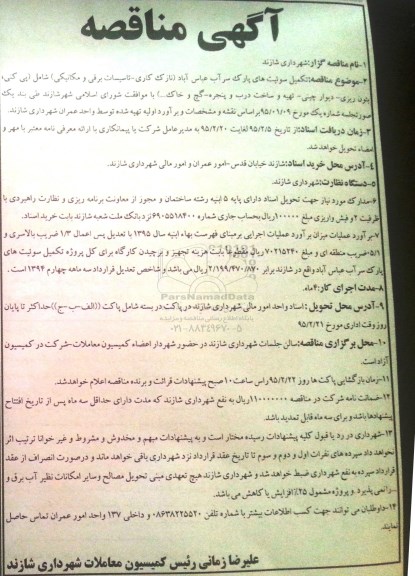 آگهی مناقصه
۱-نام مناقصه گزار:شهرداری شازند
۲-موضوع مناقصه:تکمیل سوئیت های پارک سرآب عباس آباد (نازک کاری-تاسیسات برقی و مکانیکی) شامل (پی کنی،
بتون ریزی- دیوار چینی- تهیه و ساخت درب و پنجره-گچ و خاک...) با موافقت شورای اسلامی شهرشازند طی بند یک
صورتجلسه شماره یک مورخ ۹۵/۰۱/۰۹ براساس نقشه و مشخصات و برآورد اولیه تهیه شده توسط واحد عمران شهرداری شازند.
۳-زمان دریافت اسناد:از تاریخ ۹۵/۲/۵ لغایت ۹۵/۲/۲۰ به مدیرعامل شرکت یا پیمانکاری با ارائه معرفی نامه معتبر با مهر و
امضاء تحویل خواهدشد.
۴-آدرس محل خرید اسناد:شازند خیابان قدس-امور عمران و امور مالی شهرداری شازند.
۵-دستگاه نظارت:شهرداری شازند.
۶-مدارک مورد نیاز جهت تحویل اسناد دارای پایه ۵ ابنیه رشته ساختمان و مجوز از معاونت برنامه ریزی و نظارت راهبردی با
ظرفیت ۲ و فیش واریزی مبلغ ۱۰۰۰۰۰۰ ریال بحساب جاری شماره ۶۹۰۵۵۱۸۴۰۰ نزد بانک ملت شعبه شازند بابت خرید اسناد.
۷-برآورد عملیات میزان برآورد عملیات اجرایی برمبنای فهرست بهاء ابنیه سال ۱۳۹۵ با تعدیل پس اعمال ۱/۳ ضریب بالاسری و
۵/۱ ضریب منطقه ای و مبلغ ۷۰۲۱۵۲۴۰ ریال مقطوعا بابت هزینه تجهیز و برچیدن کارگاه برای کل پروژه تکمیل سوئیت های
پارک سرآب عباس آباد واقع در شازند برابر ۲/۱۹۹/۴۷۰/۸۷۰ ریال می باشد و شاخص تعدیل قرارداد سه ماهه چهارم ۱۳۹۴ است.
۸-مدت اجرای کار:۴ماه.
۹-آدرس محل تحویل : اسناد واحد امور مالی شهرداری شازند در پاکت دربسته شامل پاکت ((الف-ب-ج))حداکثر تا پایان
روز وقت اداری مورخ ۹۵/۲/۲۱
۱۰-محل برگزاری مناقصه:سالن جلسات شهرداری شازند در حضور شهردار اعضاء کمیسیون معاملات-شرکت در کمیسیون
آزاد است.
۱۱-زمان بازگشایی پاکت ها روز ۹۵/۲/۲۲ راس ساعت ۱۰ صبح پیشنهادات قرائت و برنده مناقصه اعلام خواهدشد.
۱۲-ضمانت نامه شرکت در مناقصه ۱۱۰۰۰۰۰۰۰ ریال به نفع شهرداری شازند که مدت دارای حداقل سه ماه پس از تاریخ افتتاح
پیشنهادها باشد و برای سه ماه قابل تمدید باشد.
۱۳-شهرداری در رد یا قبول کلیه پیشنهادات رسیده مختار است و به پیشنهادات مبهم و مخدوش و مشروط و غیر خوانا ترتیب اثر
نخواهد داد سپرده های نفرات اول و دوم و سوم تا تاریخ عقد قرارداد نزد شهرداری باقی خواهد ماند و درصورت انصراف از عقد
قرارداد سپرده به نفع شهرداری ضبط خواهد شد و شهرداری شازند هیچ تعهدی مبنی تحویل مصالح وسایر امکانات نظیر آب برق و
...رانمی پذیرد و پروژه مشمول ۲۵٪افزایش یا کاهش می باشد.
۱۴-داوطلبان می توانند جهت کسب اطلاعات بیشتر با شماره تلفن ۰۸۶۳۸۲۲۵۵۲۰ و داخلی ۱۳۷ واحد امور عمران تماس حاصل
نمایند.
علیرضا زمانی رئیس کمیسیون معاملات شهرداری شازند
ParsNamadData
۰۲۱-۸۸۳۴۹۶۷۰-۵